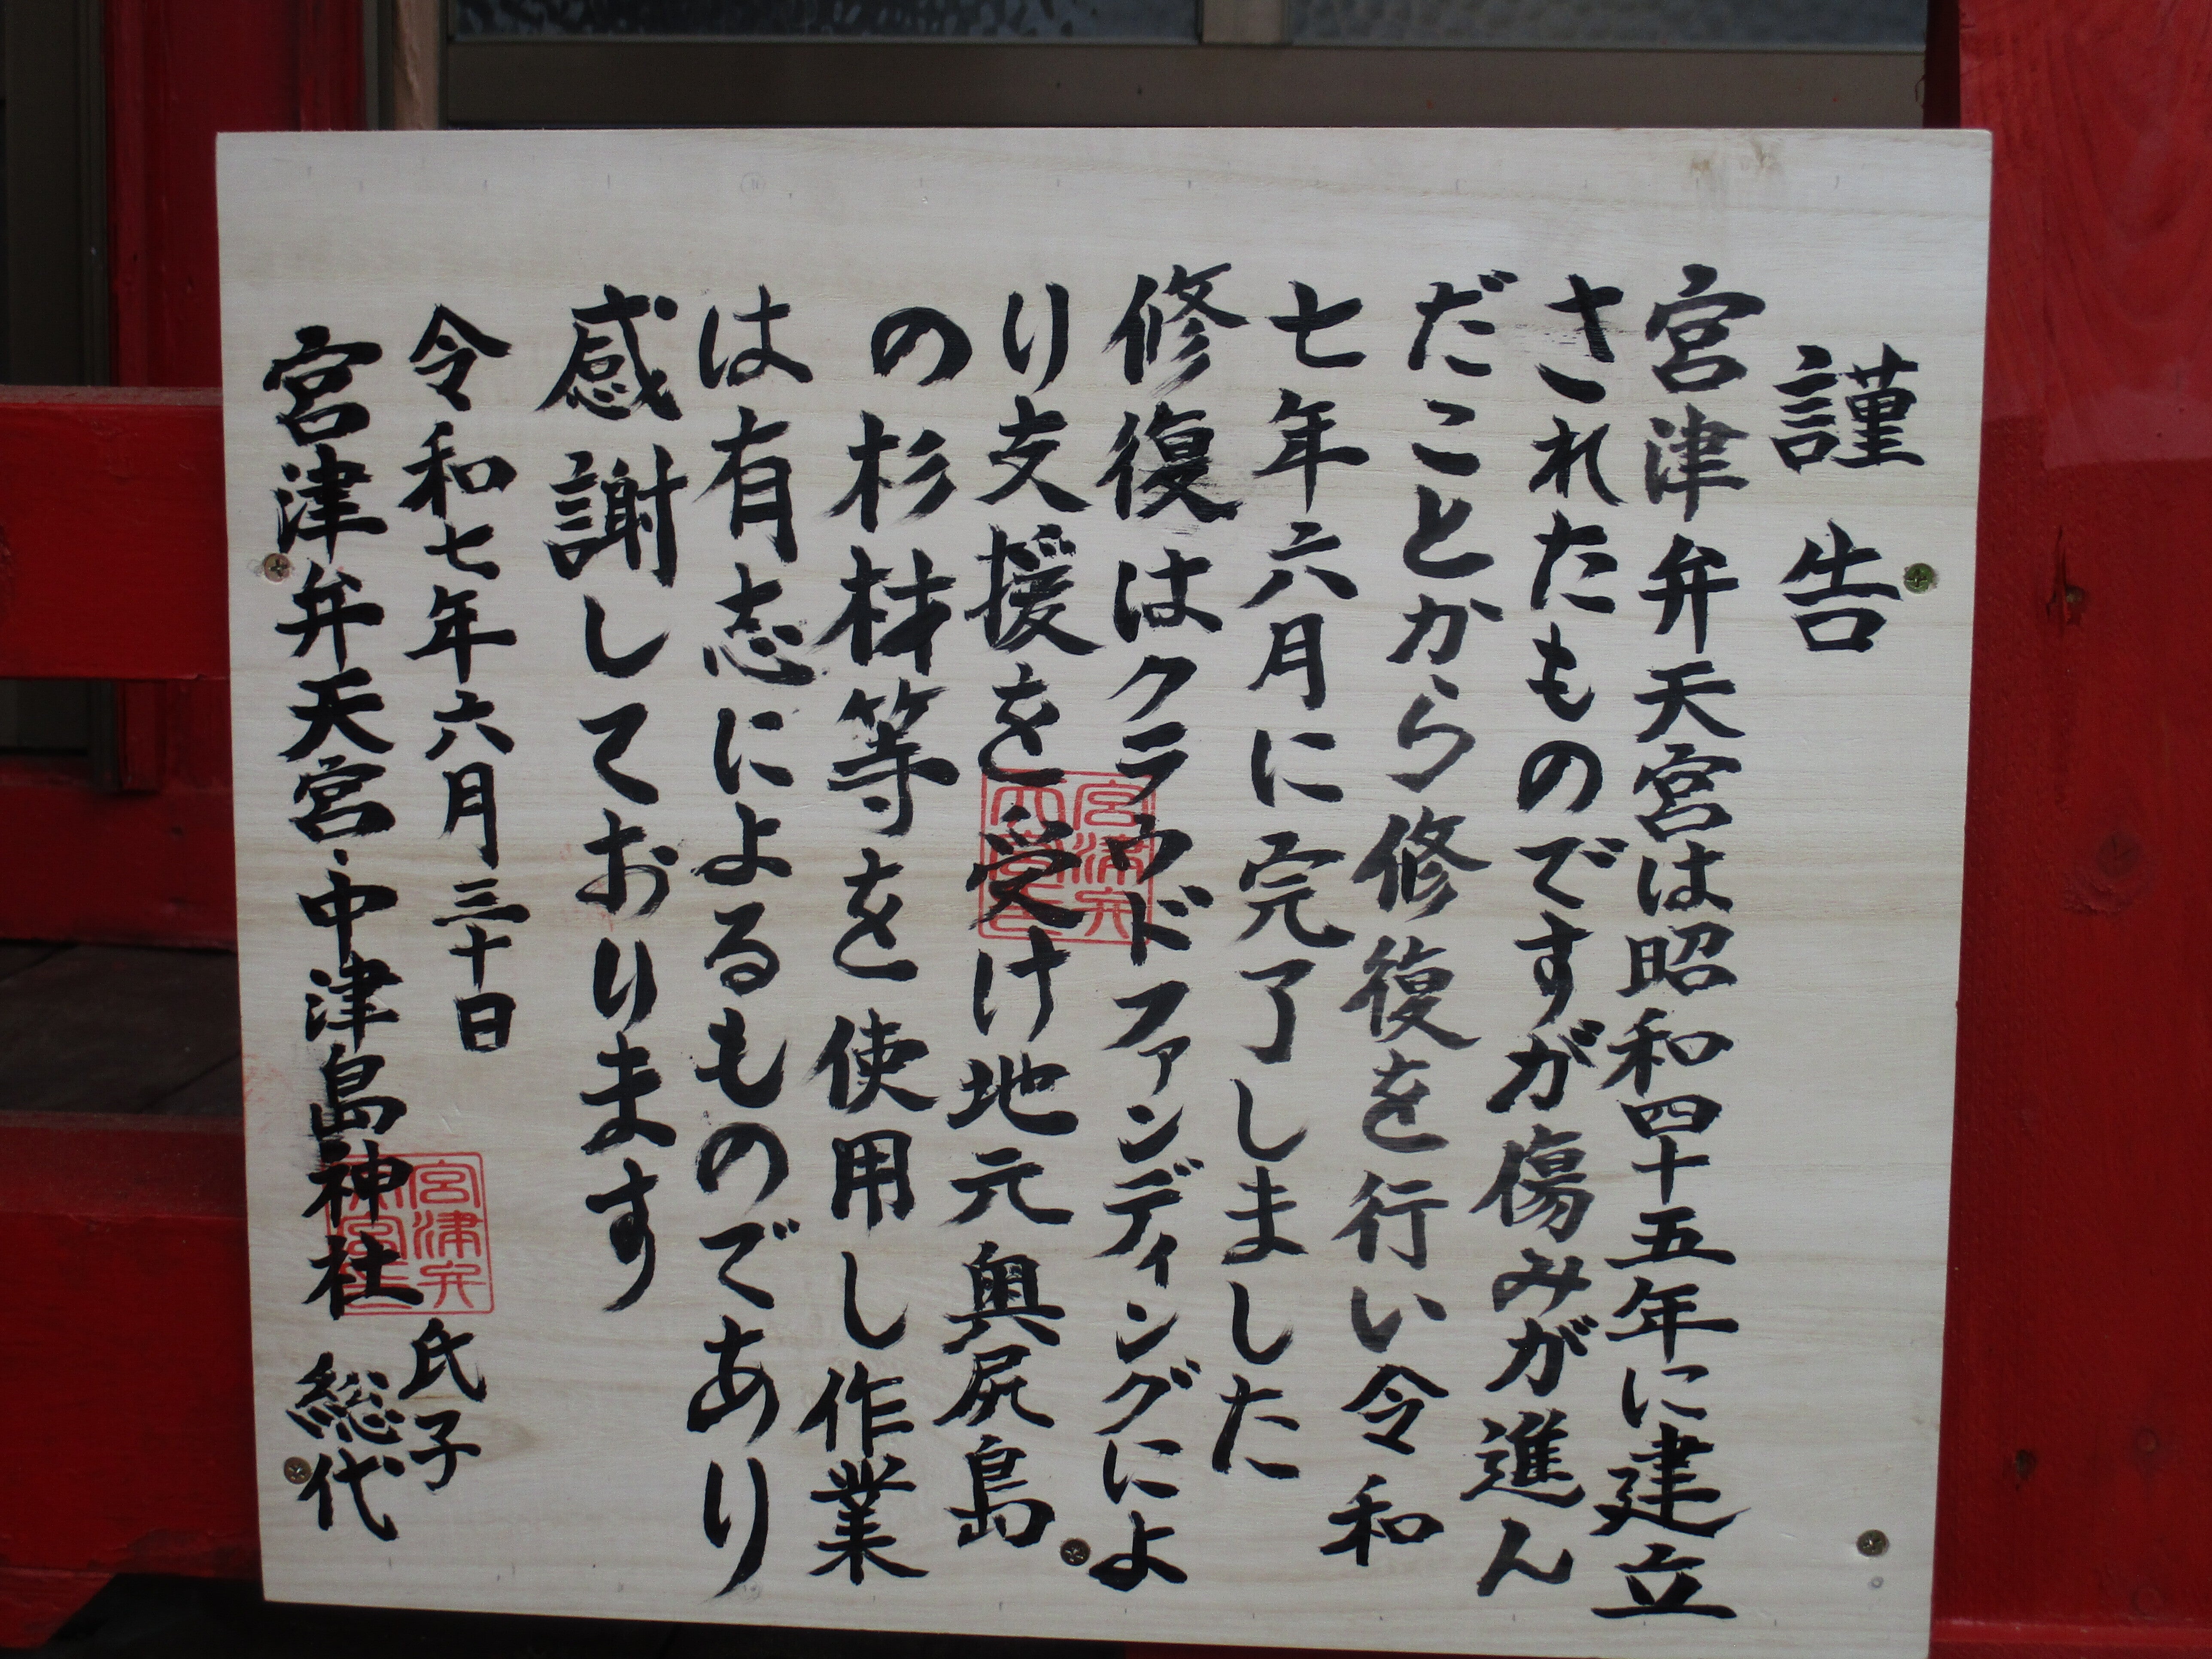 謹告
宮津弁天宮は昭和四十五年に建立
されたものですが傷みが進ん
だことから修復を行い令和
七年六月に完了しました
修復はクラウドファンディングによ
り支援を受け地元奥尻島
の杉材等を使用し作業
は有志によるものであり
感謝しております
令和七年六月三十日
宮津弁天宮・中津島神社
氏子
総代
宮津弁